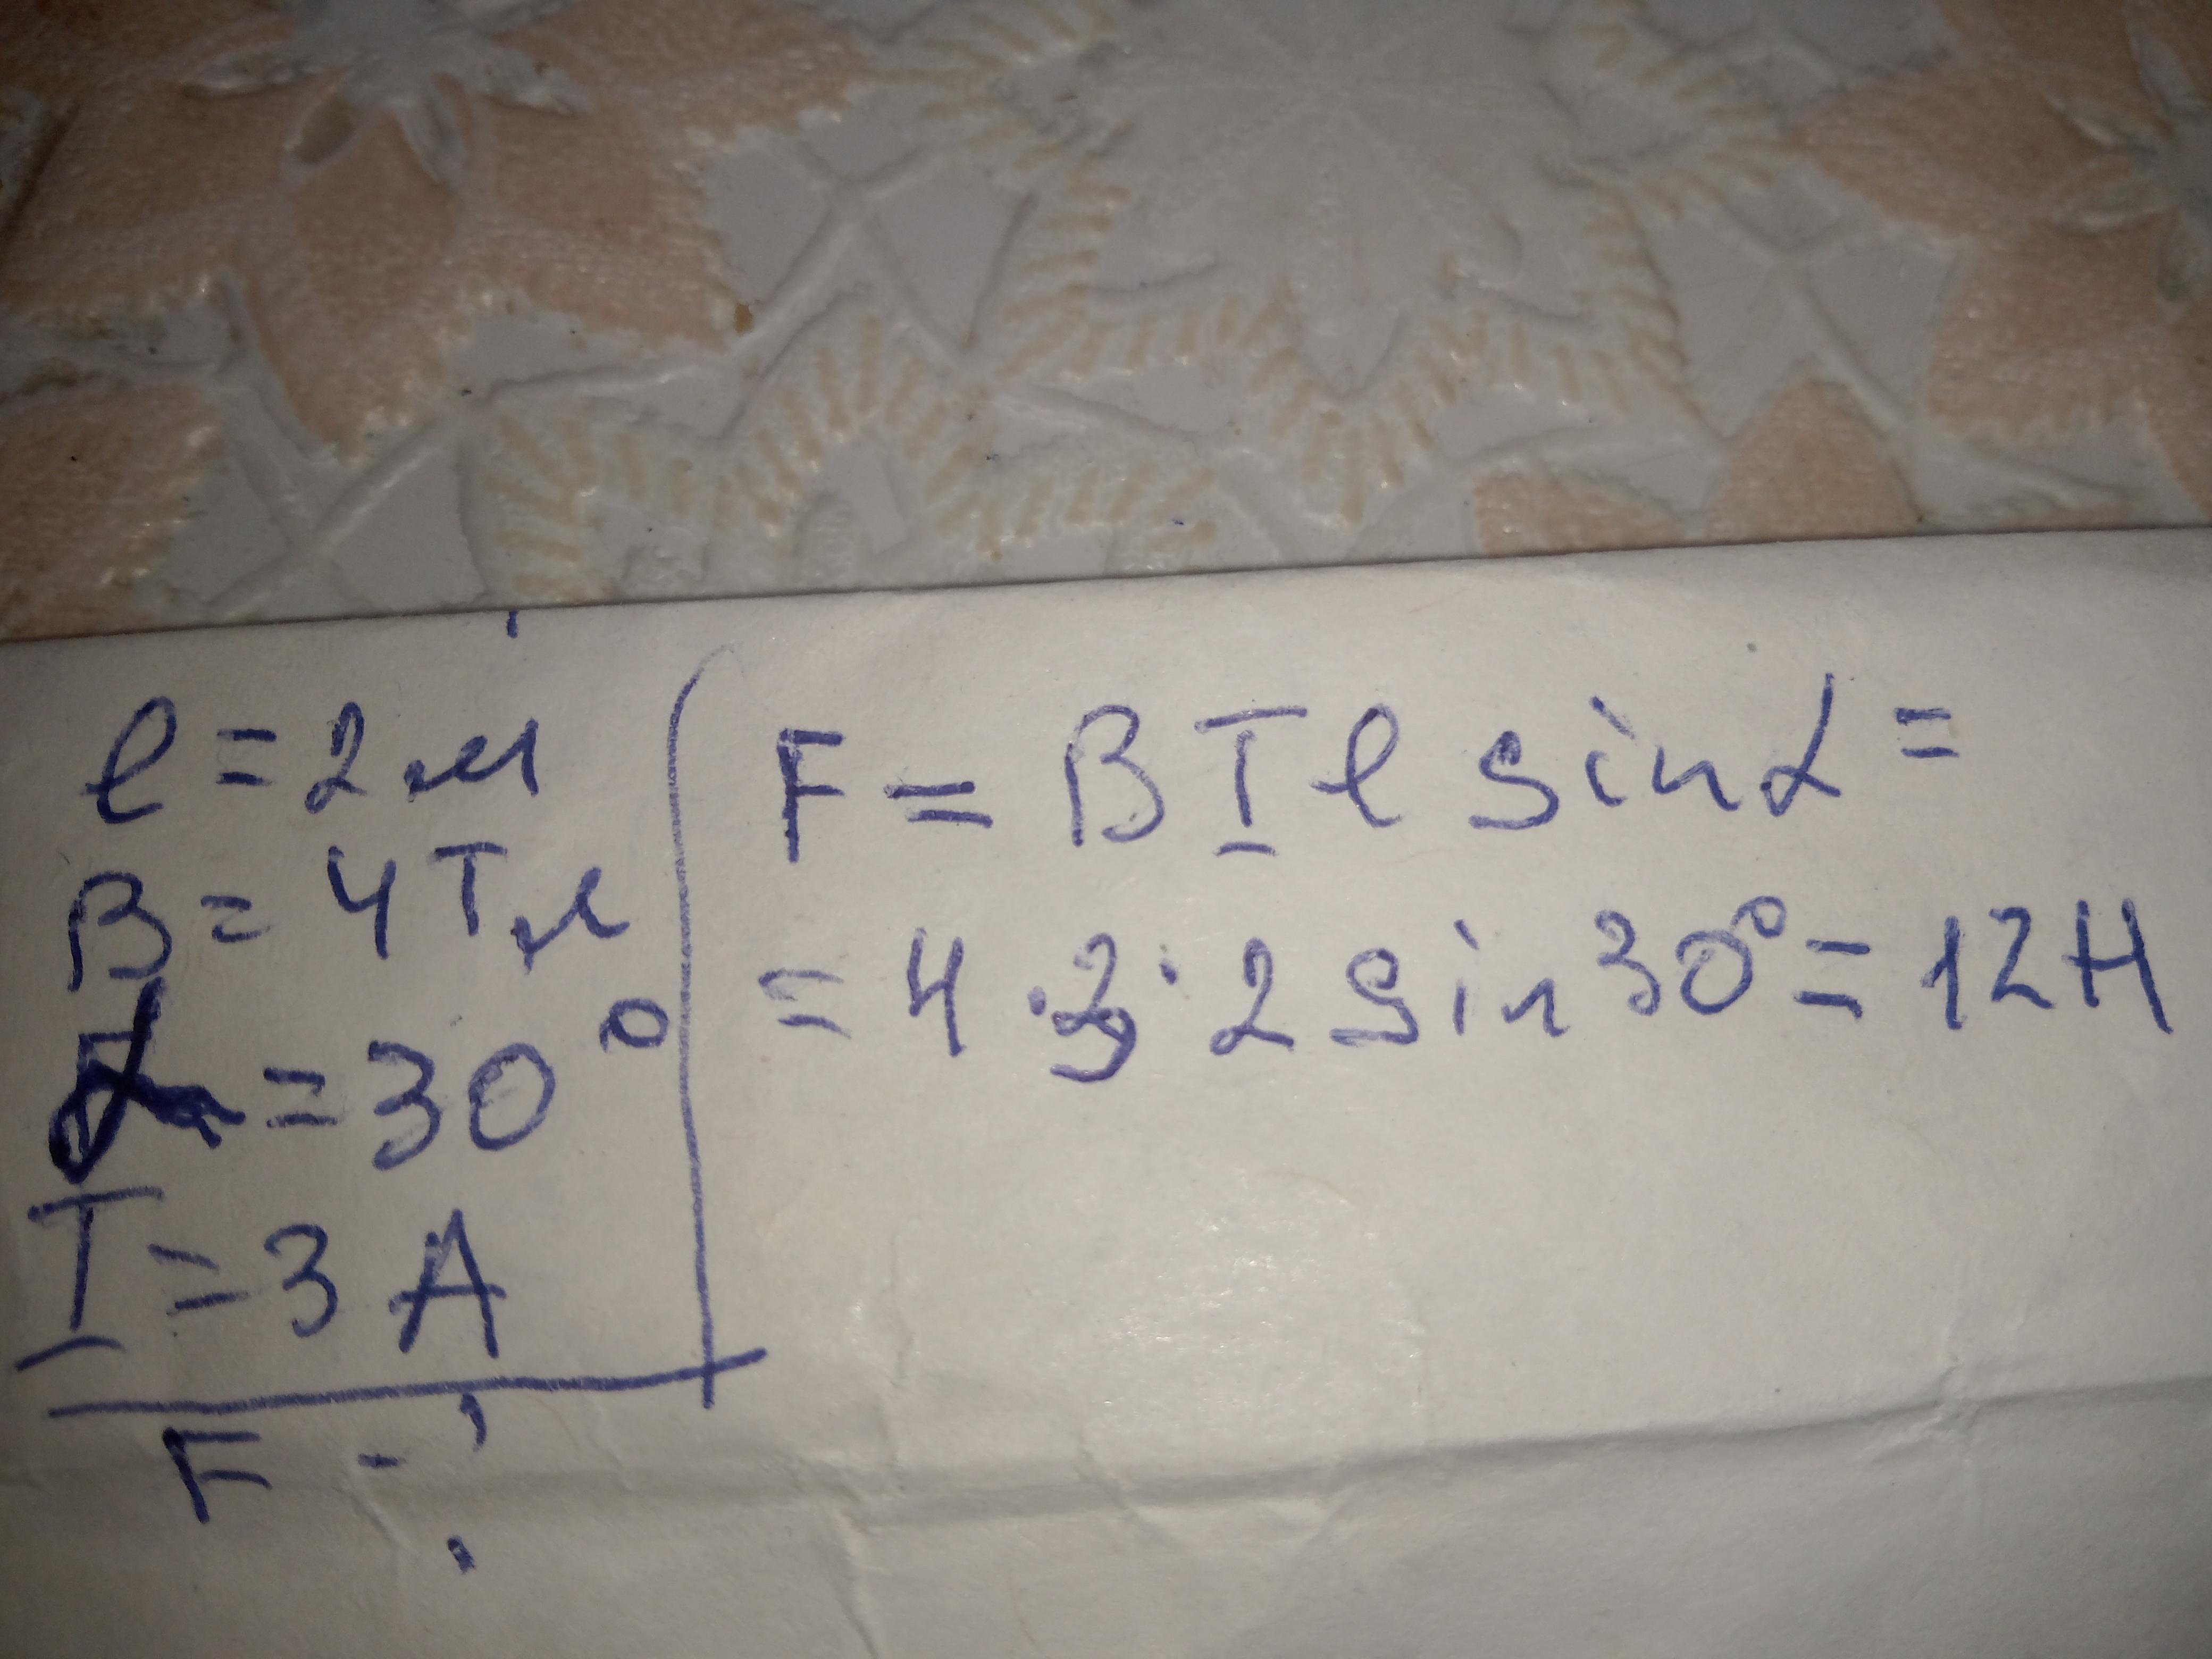 l = 2 м
B = 4 Тл
α = 30°
I = 3 А
F - ?
F = B I l sin α =
= 4 · 3 · 2 sin 30° = 12 Н